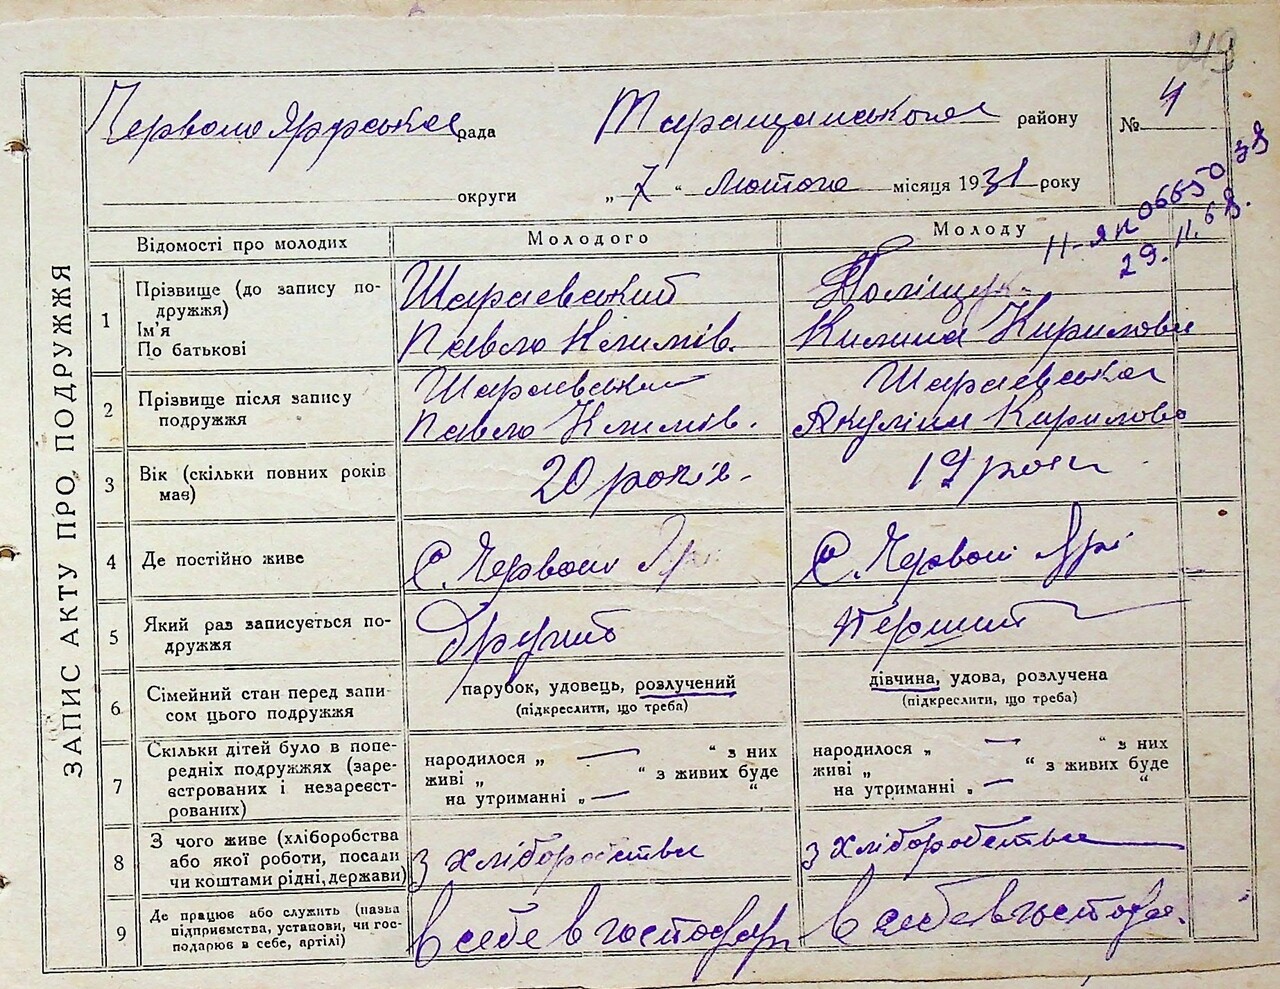 219
ЗАПИС АКТУ ПРО ПОДРУЖЖЯ
Червоно Ярська рада Таращанського району № 4
округи „ 7 “ лютого місяця 1931 року
Н-ЯЛ 0665038
29. 11. 68.
Відомості про молодих Молодого Молоду
1 Прізвище (до запису по-
дружжя)
Ім'я
По батькові
Шараєвський
Павло Климів.
Поліщук
Килина Кирилова
2 Прізвище після запису
подружжя
Шараєвський
Павло Климів.
Шараєвська
Якулина Кирилова
3 Вік (скільки повних років
має)
20 років.
19 роки
4 Де постійно живе
С. Червоний Яр
С. Червоний Ярі
5 Який раз записується по-
дружжя
Другий
Перший
6 Сімейний стан перед запи-
сом цього подружжя
парубок, удовець, розлучений
(підкреслити, що треба)
дівчина, удова, розлучена
(підкреслити, що треба)
7 Скільки дітей було в попе-
редніх подружжях (заре-
єстрованих і незареєст-
рованих)
народилося „ — “ з них
живі „ “ з живих буде
на утриманні „ — “
народилося „ — “ з них
живі „ “ з живих буде
на утриманні „ — “
8 З чого живе (хліборобства
або якої роботи, посади
чи коштами рідні, держави)
з хліборобства
з хліборобства
9 Де працює або служить (назва
підприємства, установи, чи гос-
подарює в себе, артілі)
в себе в господар
в себе в господа.